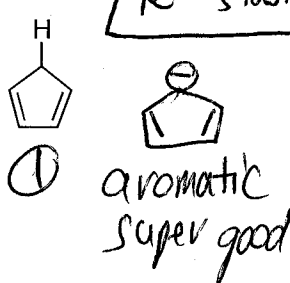 H
①
⊖
aromatic
super good